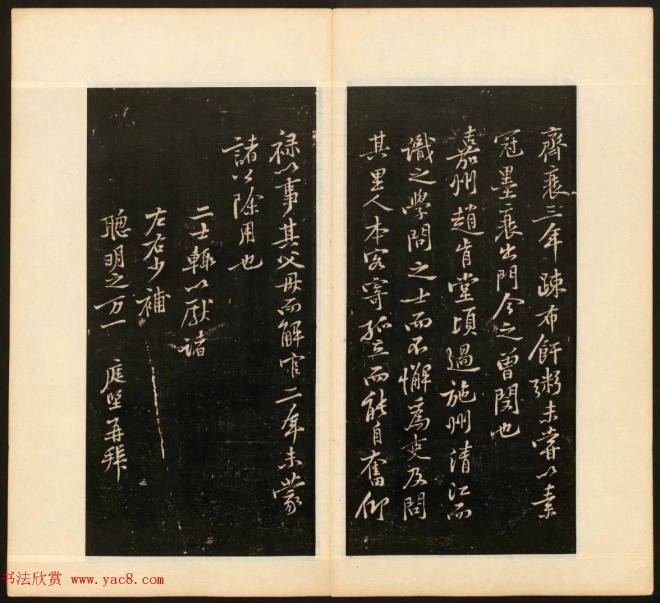 齊衰三年疎布飦粥未嘗以素
冠墨衰出門今之曾閔也
嘉州趙肯堂頃過施州清江而
識之學問之士而不懈為吏及問
其里人本客寄孤立而能自奮仰
祿以事其父母而解官二年未蒙
諸以除用也
二士輙以獻諸
左右少補
聰明之万一 庭堅再拜
书法欣赏 www.yac8.com